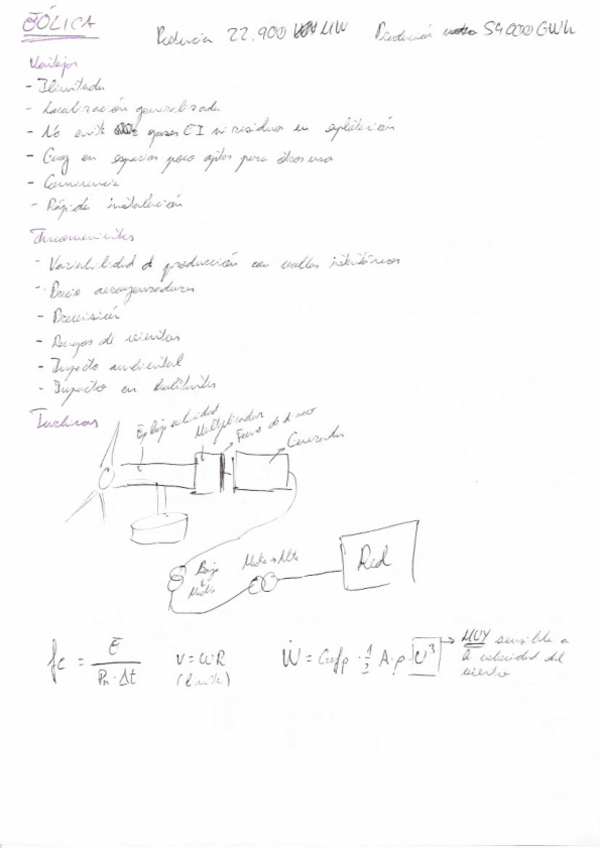 EÓLICA
Potencia 22.900 MW Producción 54000 GWh
Ventajas
- Ilimitada
- Localización generalizada
- No emite gases EI ni residuos en explotación
- en espacios poco aptos para otros usos
-
- Rápida instalación
Inconvenientes
- Variabilidad d producción con
- Precio aerogeneradores
- Previsión
- de vientos
- Impacto ambiental
- Impacto en habitantes
Turbinas
Eje baja velocidad
Multiplicador
Freno de disco
Generador
Baja a Media
Media → Alta
Red
fc = E / Pn · Δt
v = ωR
(límite)
Ẇ = Coefp · 1/2 A · ρ · v³ → MUY sensible a
la velocidad del
viento